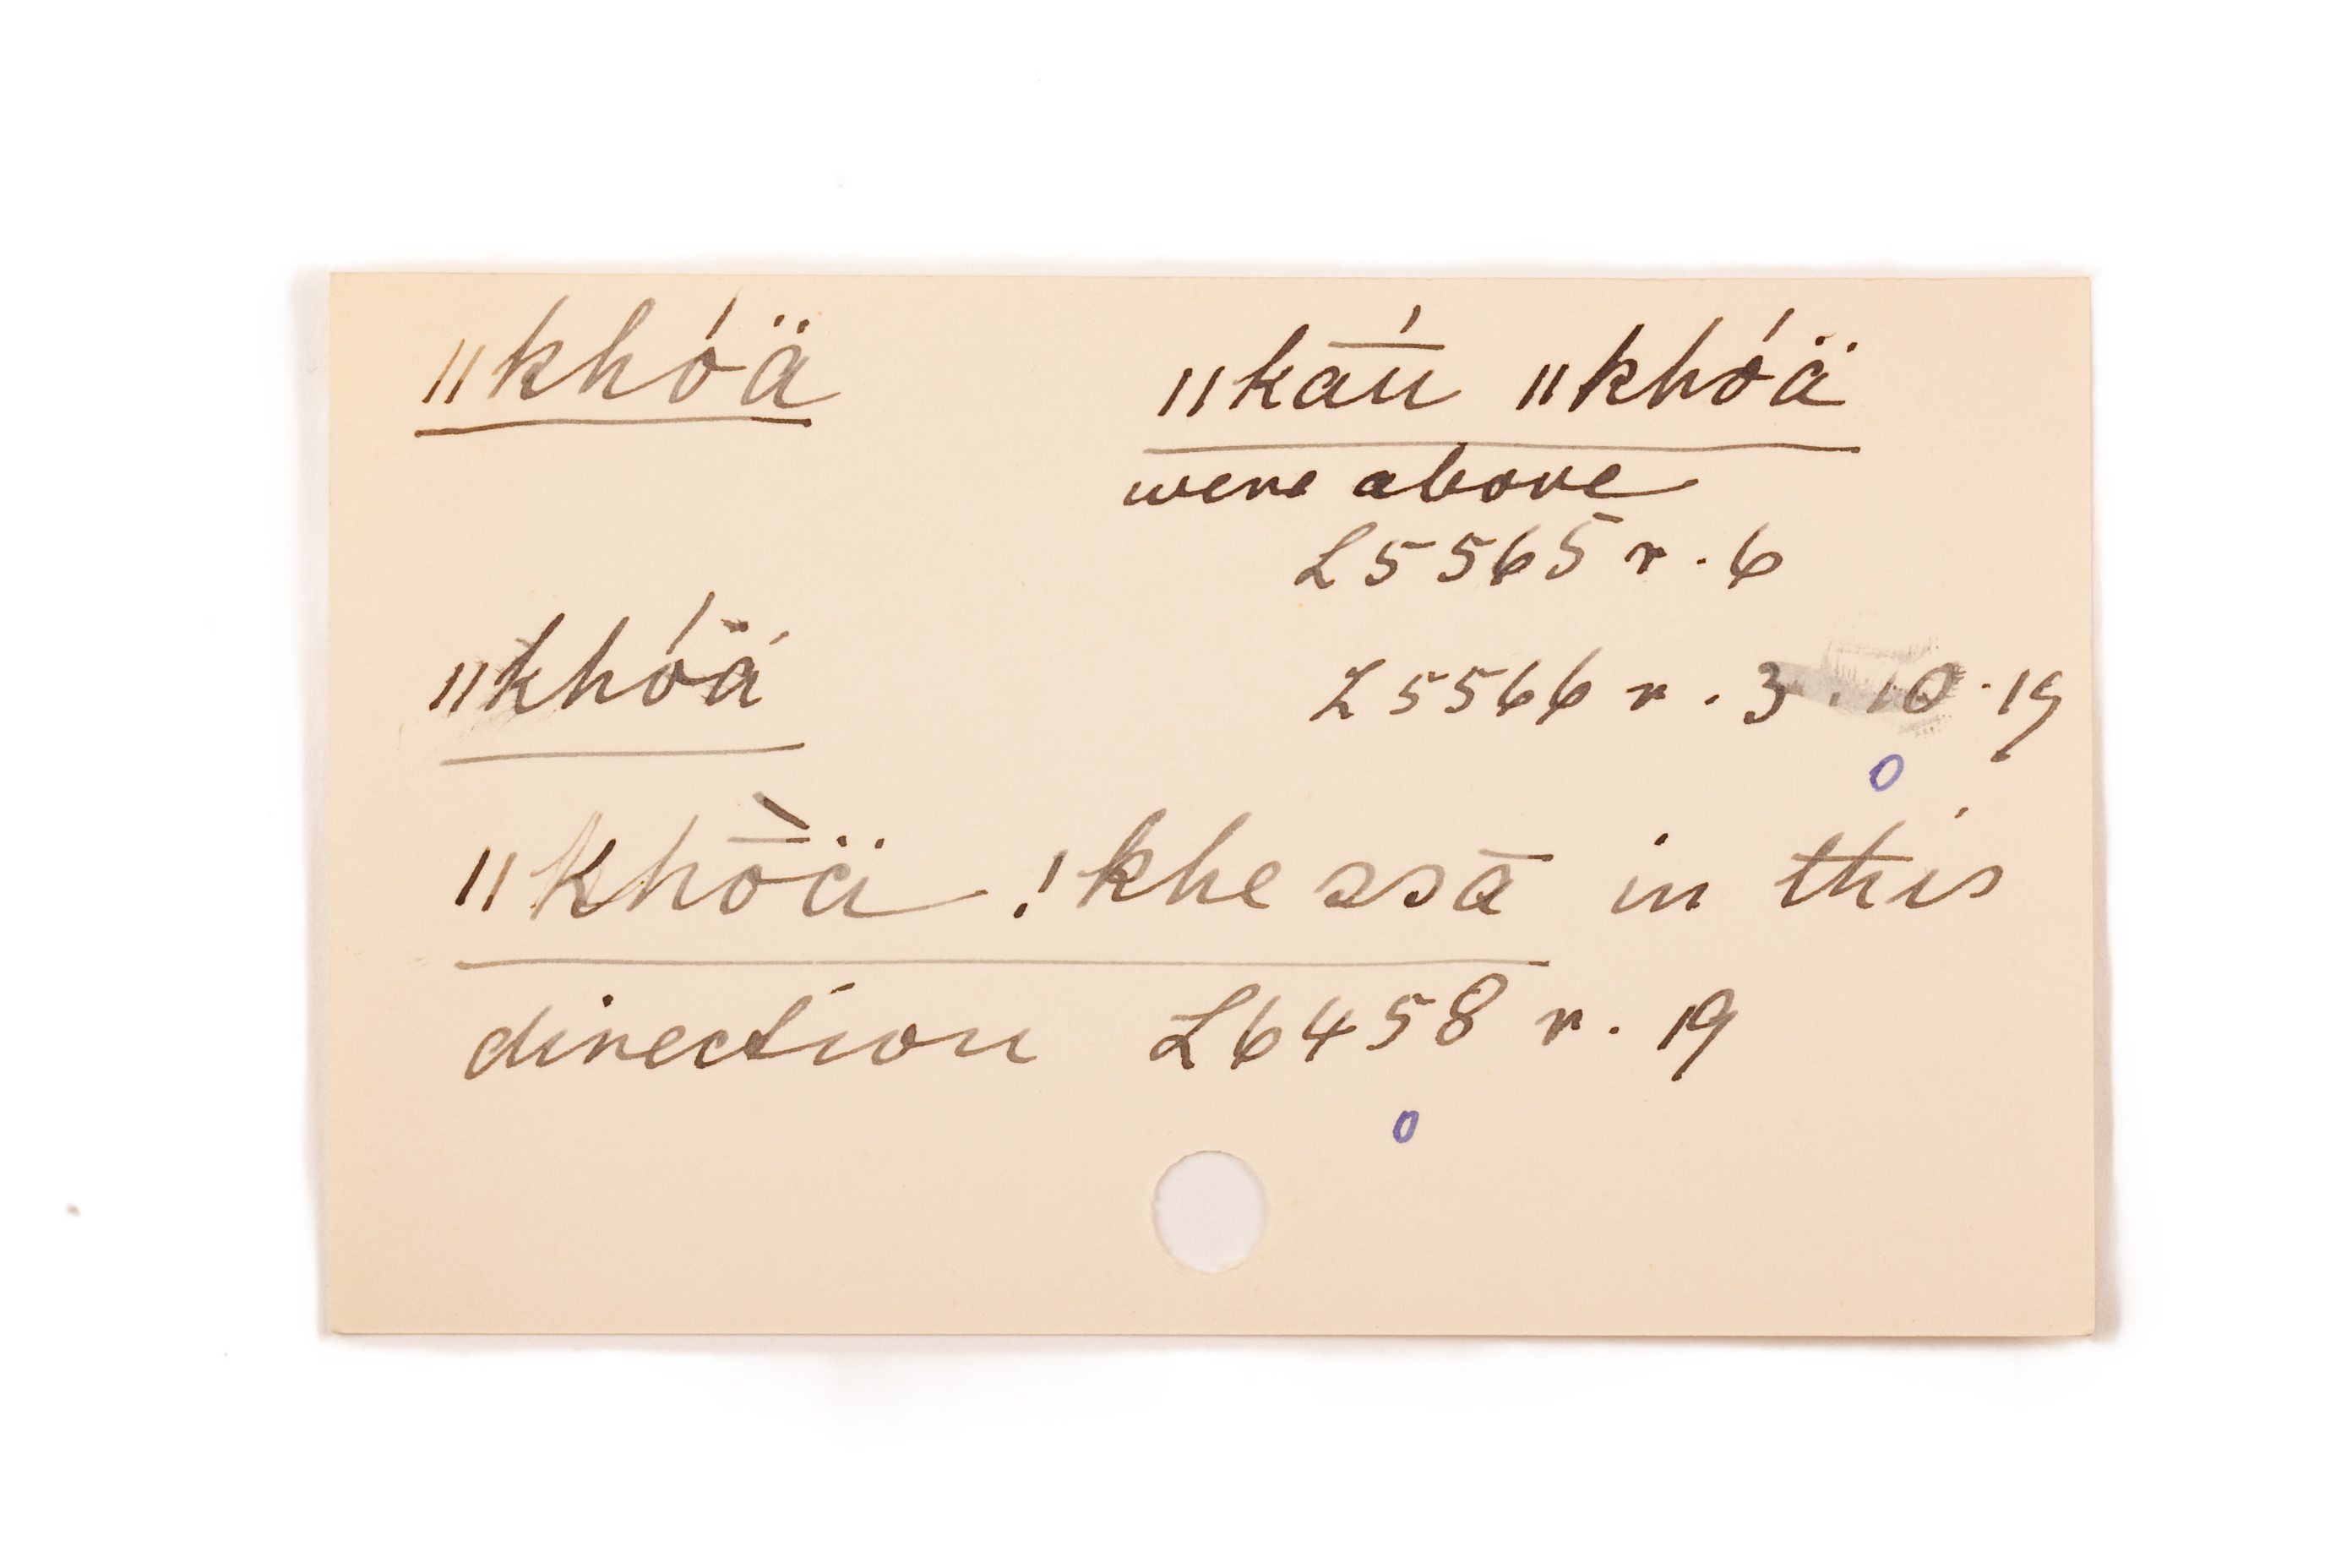 ǁkhóä ǁka̅ú ǁkhóä
were above
L5565 r. 6
ǁkhóä́ L5566 r. 3. 10. 19
ǁkhṑä !khe ssā in this
direction L6458 r. 19